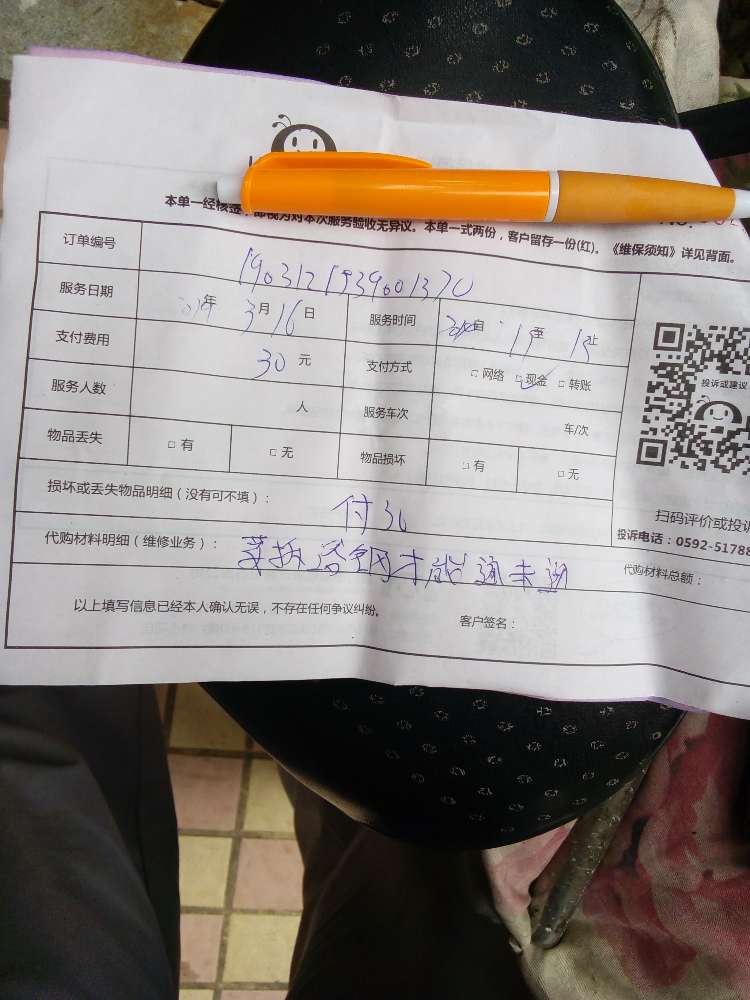 本单一经核签，即视为对本次服务验收无异议。本单一式两份，客户留存一份(红)。《维保须知》详见背面。
订单编号 190312193900137
服务日期 年 3 月 16 日 服务时间 自 至 止
支付费用 30 元 支付方式 □ 网络 □ 现金 □ 转账
投诉或建议
服务人数 人 服务车次 车/次
物品丢失 □ 有 □ 无 物品损坏 □ 有 □ 无
损坏或丢失物品明细（没有可不填）： 付30
扫码评价或投诉
投诉电话：0592-51788
代购材料明细（维修业务）： 要拆 才能通去 代购材料总额：
以上填写信息已经本人确认无误，不存在任何争议纠纷。 客户签名：